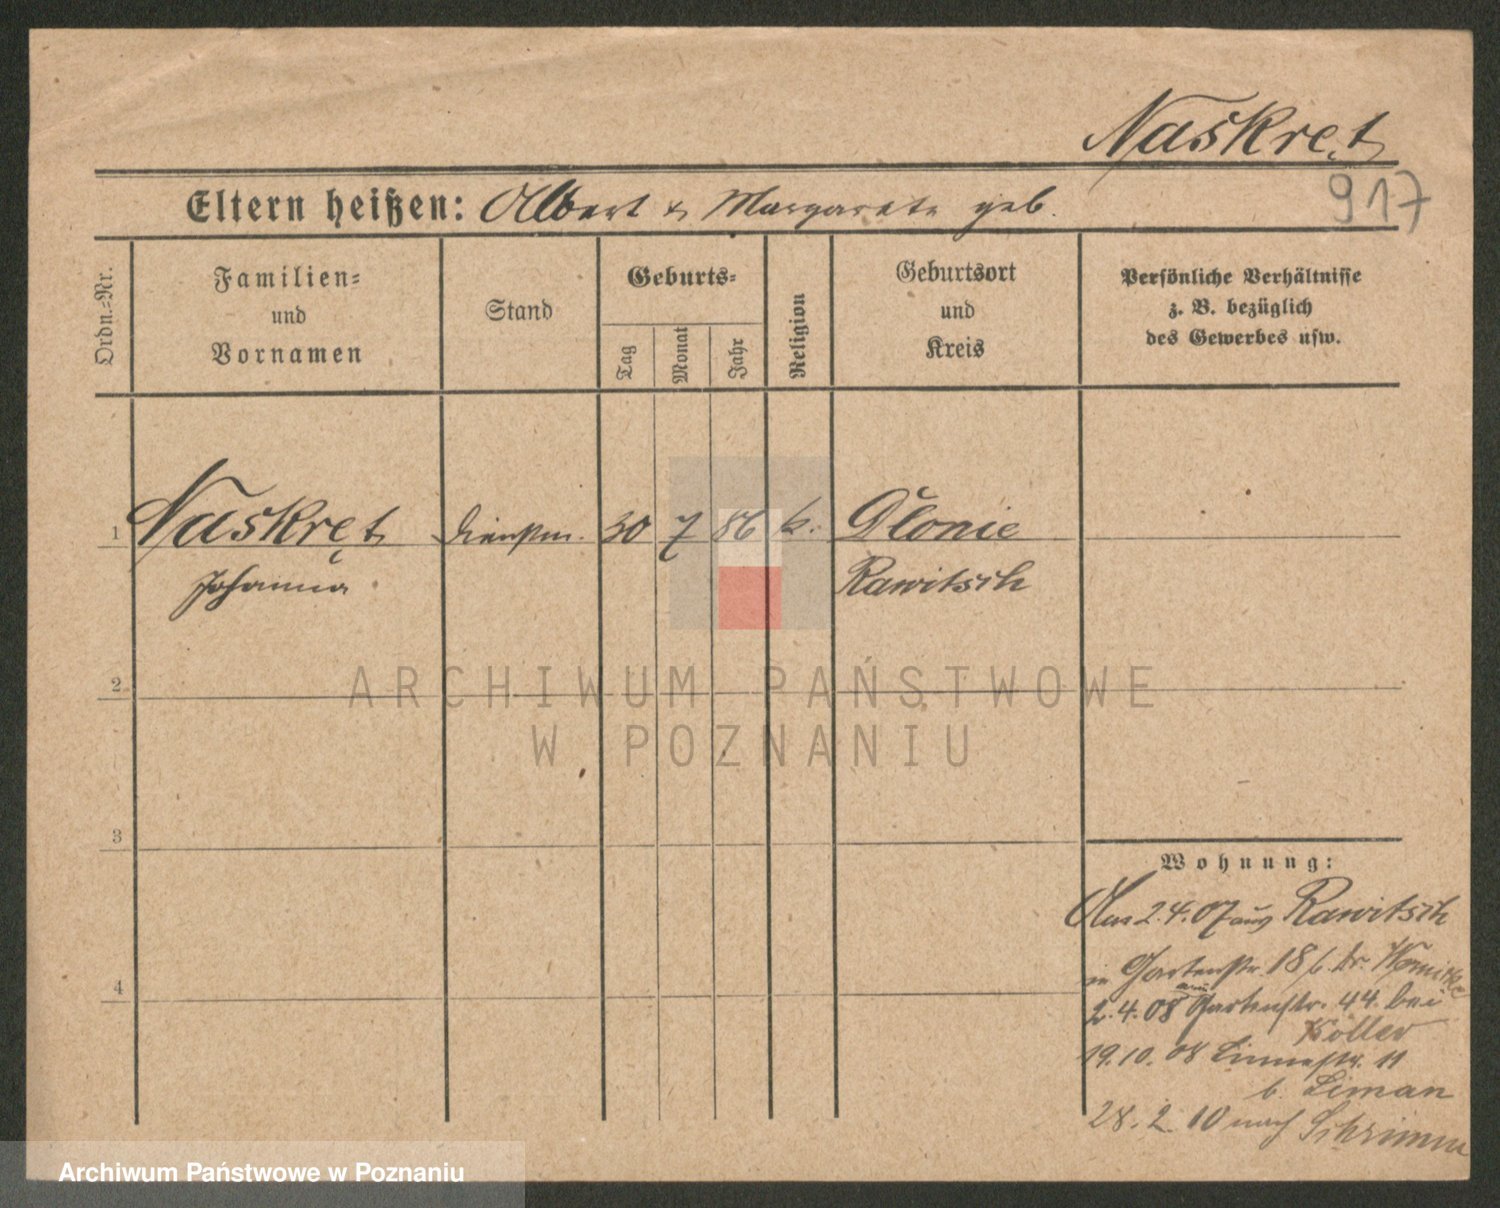 Naskręt
917
Eltern heißen: Albert & Margarete geb.
Ordn.-Nr.
Familien-
und
Vornamen
Stand
Geburts-
Tag
Monat
Jahr
Religion
Geburtsort
und
Kreis
Persönliche Verhältnisse
z. B. bezüglich
des Gewerbes usw.
1 Naskręt Dienstm. 30 7 86 k. Dłonie
Johanna Rawitsch
2
ARCHIWUM PAŃSTWOWE
W POZNANIU
3
Wohnung:
Am 2.4.07 aus Rawitsch
in Gartenstr. 18 b. Dr.
2.4.08 Gartenstr. 44. bei
Köller
4
19.10.08 Linnestr. 11
b. Liman
28.2.10 nach Schrimm
Archiwum Państwowe w Poznaniu